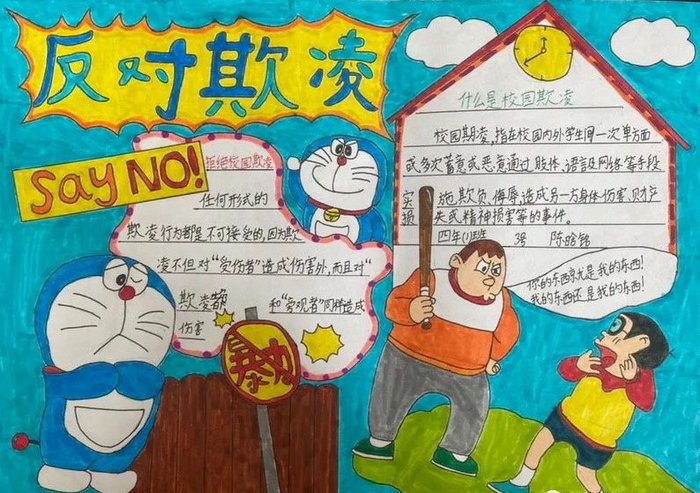 反对欺凌
Say NO!
拒绝校园欺凌
任何形式的
欺凌行为都是不可接受的,因为欺
凌不但对“受伤者”造成伤害外,而且对“
欺凌者 和“旁观者”同样造成
伤害
暴力
什么是校园欺凌
校园期凌,指在校园内外学生间一次单方面
或多次蓄意或恶意通过肢体、语言及网络等手段
实施,欺负、侮辱,造成另一方身体伤害、财产
损失或精神损害等的事件。
四年(1)班 3号
你的东西就是我的东西!
我的东西还是我的东西!